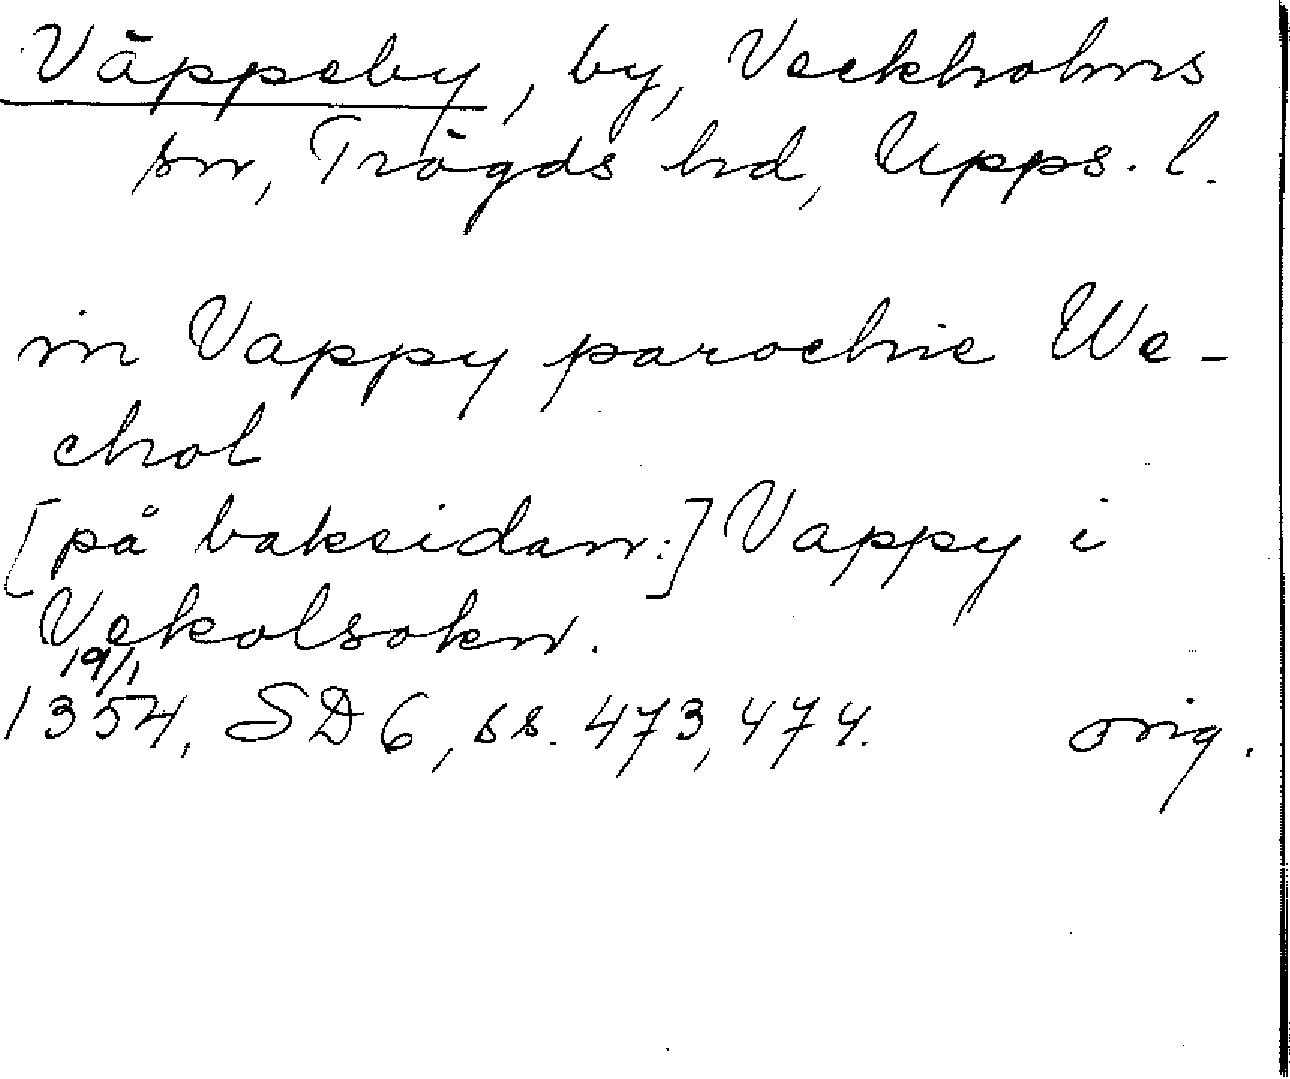 Väppeby, by, Veckholms
sn, Trögds hd, Upps. l.
in Vappy parochie We-
chol
[på baksidan:] Vappy i
Vekolsokn.
19/1
1354, SD 6, ss. 473, 474. orig.